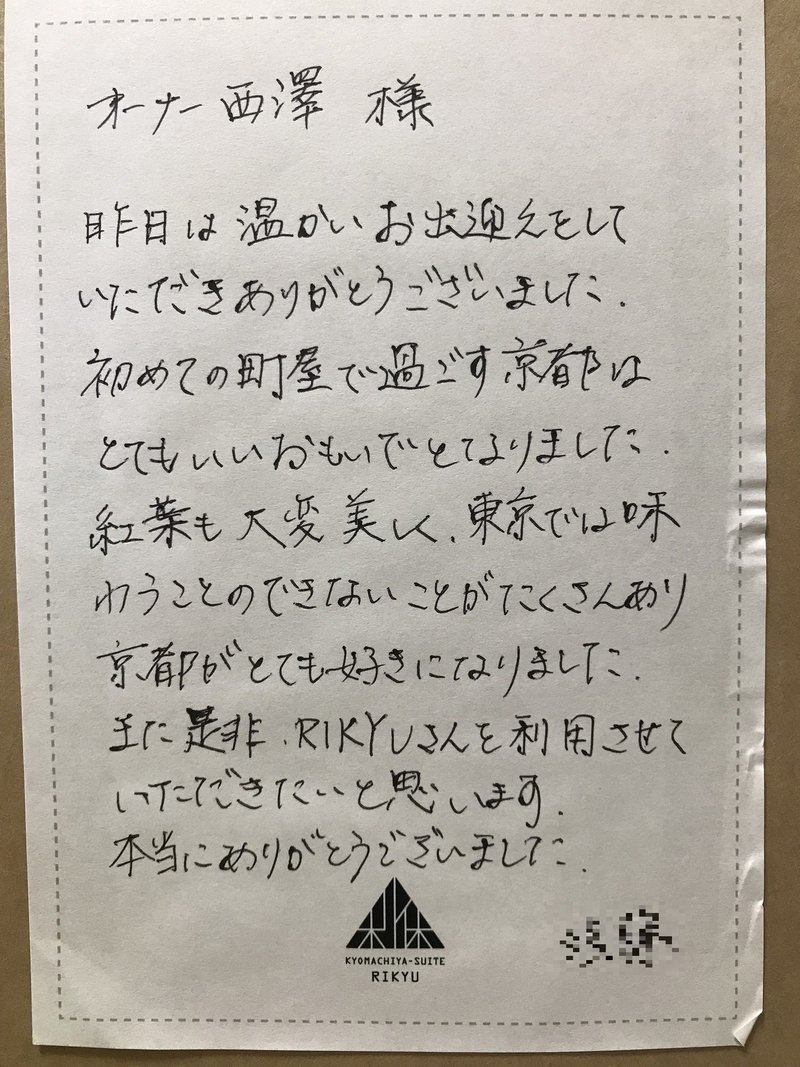 オーナー西澤 様
昨日は温かいお出迎えをして
いただきありがとうございました.
初めての町屋で過ごす京都は
とてもいいおもいでとなりました.
紅葉も大変美しく、東京では味
わうことのできないことがたくさんあり
京都がとても好きになりました.
また是非、RIKYUさんを利用させて
いただきたいと思います.
本当にありがとうございました.
KYOMACHIYA-SUITE
RIKYU